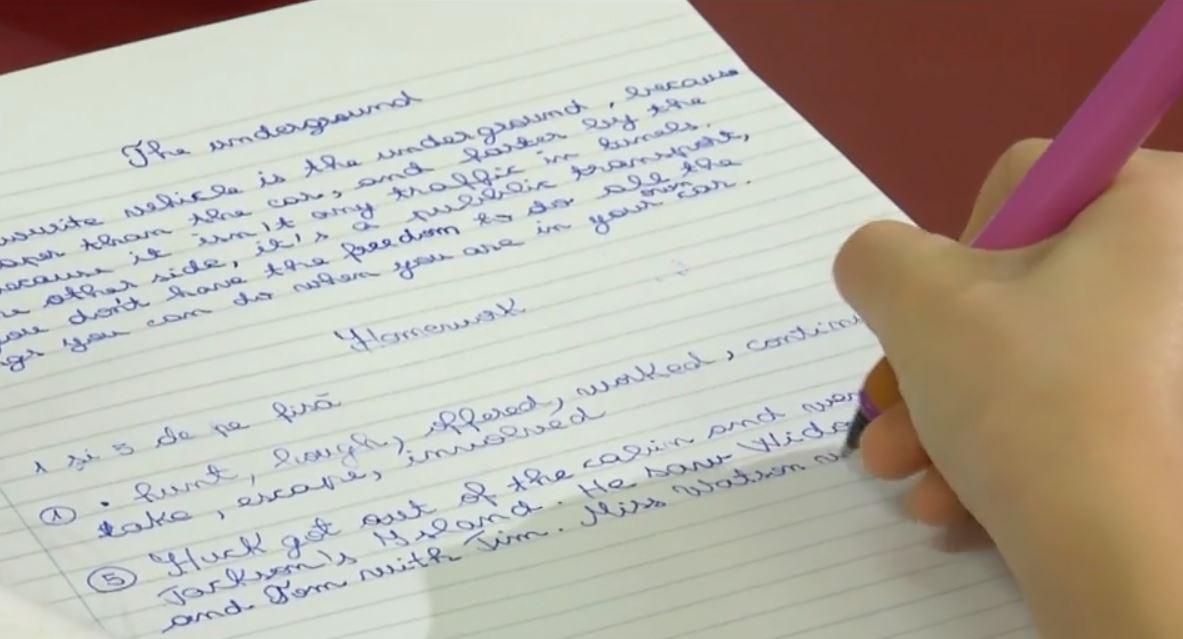 The underground
vehicle is the underground, because
than the car, and faster by the
because it isn't any traffic in tunels.
other side, it's a public transport,
you don't have the freedom to do all the
you can do when you are in your own car.
Homework
1 și 5 de pe fisă
① · hunt, laugh, offered, worked, contin
take, escape, involved
⑤ Huck got out of the cabin and
Jackson's Island. He saw
and Tom with Jim. Miss Watson